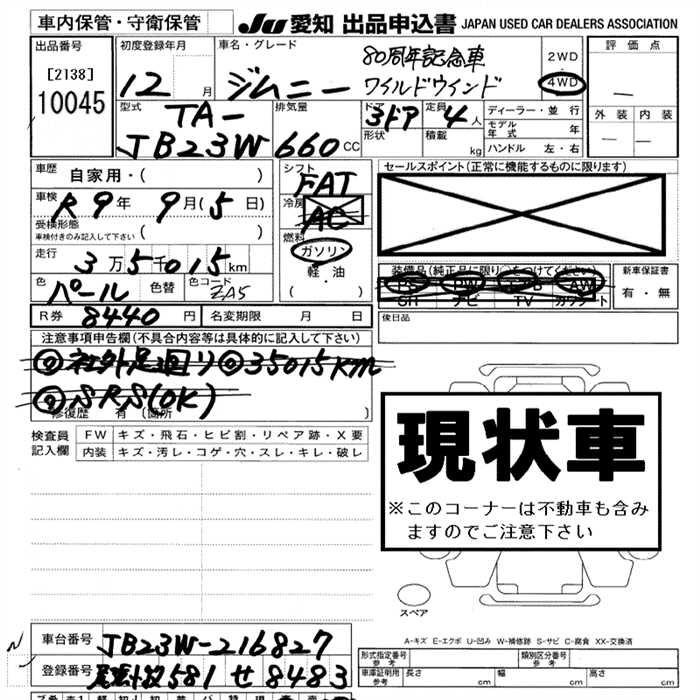 車内保管・守衛保管
JU 愛知 出品申込書 JAPAN USED CAR DEALERS ASSOCIATION
出品番号
[2138]
10045
初度登録年月
12 月
車名・グレード
80周年記念車
ジムニー ワイルドウインド
2WD
・
4WD
評価点
—
外装 内装
— —
型式
TA-
JB23W
排気量
660 CC
ドア
3ドア
形状
定員
4 人
積載 kg
ディーラー・並行
モデル年式 年
ハンドル 左・右
車歴
自家用・( )
車検
R9年 9月(5日)
受検形態
車検付きのみ記入して下さい ( )
走行
3万5千015km
色
パール
色替
色コード
ZA5
R券 8440 円
名変期限 月 日
シフト
FAT
冷房
AC
燃料
ガソリン
軽・油
( )
セールスポイント(正常に機能するものに限ります)
装備品(純正品に限り○をつけてください)
PS PW エアB AW
SR ナビ TV カワシート
新車保証書
有・無
後日品
注意事項申告欄(不具合内容等は具体的に記入して下さい)
◎社外足廻り◎35015km
◎SRS(OK)
修復歴 有(箇所 )
検査員
記入欄
FW キズ・飛石・ヒビ割・リペア跡・X要
内装 キズ・汚レ・コゲ・穴・スレ・キレ・破レ
現状車
※このコーナーは不動車も含み
ますのでご注意下さい
スペア
A-キズ E-エクボ U-凹み W-補修跡 S-サビ C-腐食 XX-交換済
車台番号 JB23W-216827
登録番号 581 せ 8483
形式指定番号
参考
類別区分番号
参考
車庫証明用
参考
長さ cm 幅 cm 高さ cm